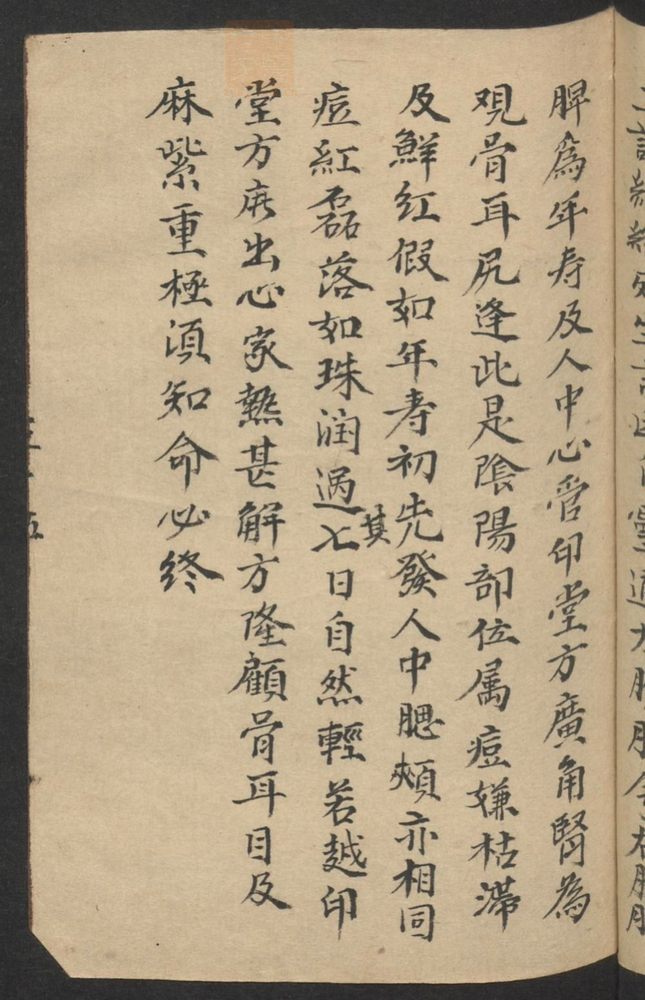 脾為年寿及人中心管印堂方廣角腎為
覌骨耳尻逢此是陰陽部位属痘嫌枯滞
及鮮红假如年寿初先發人中腮頰亦相同
其
痘紅磊落如珠潤過七日自然輕若越印
堂方庅出心家熱甚解方隆顧骨耳目及
麻紫重極湏知命必终